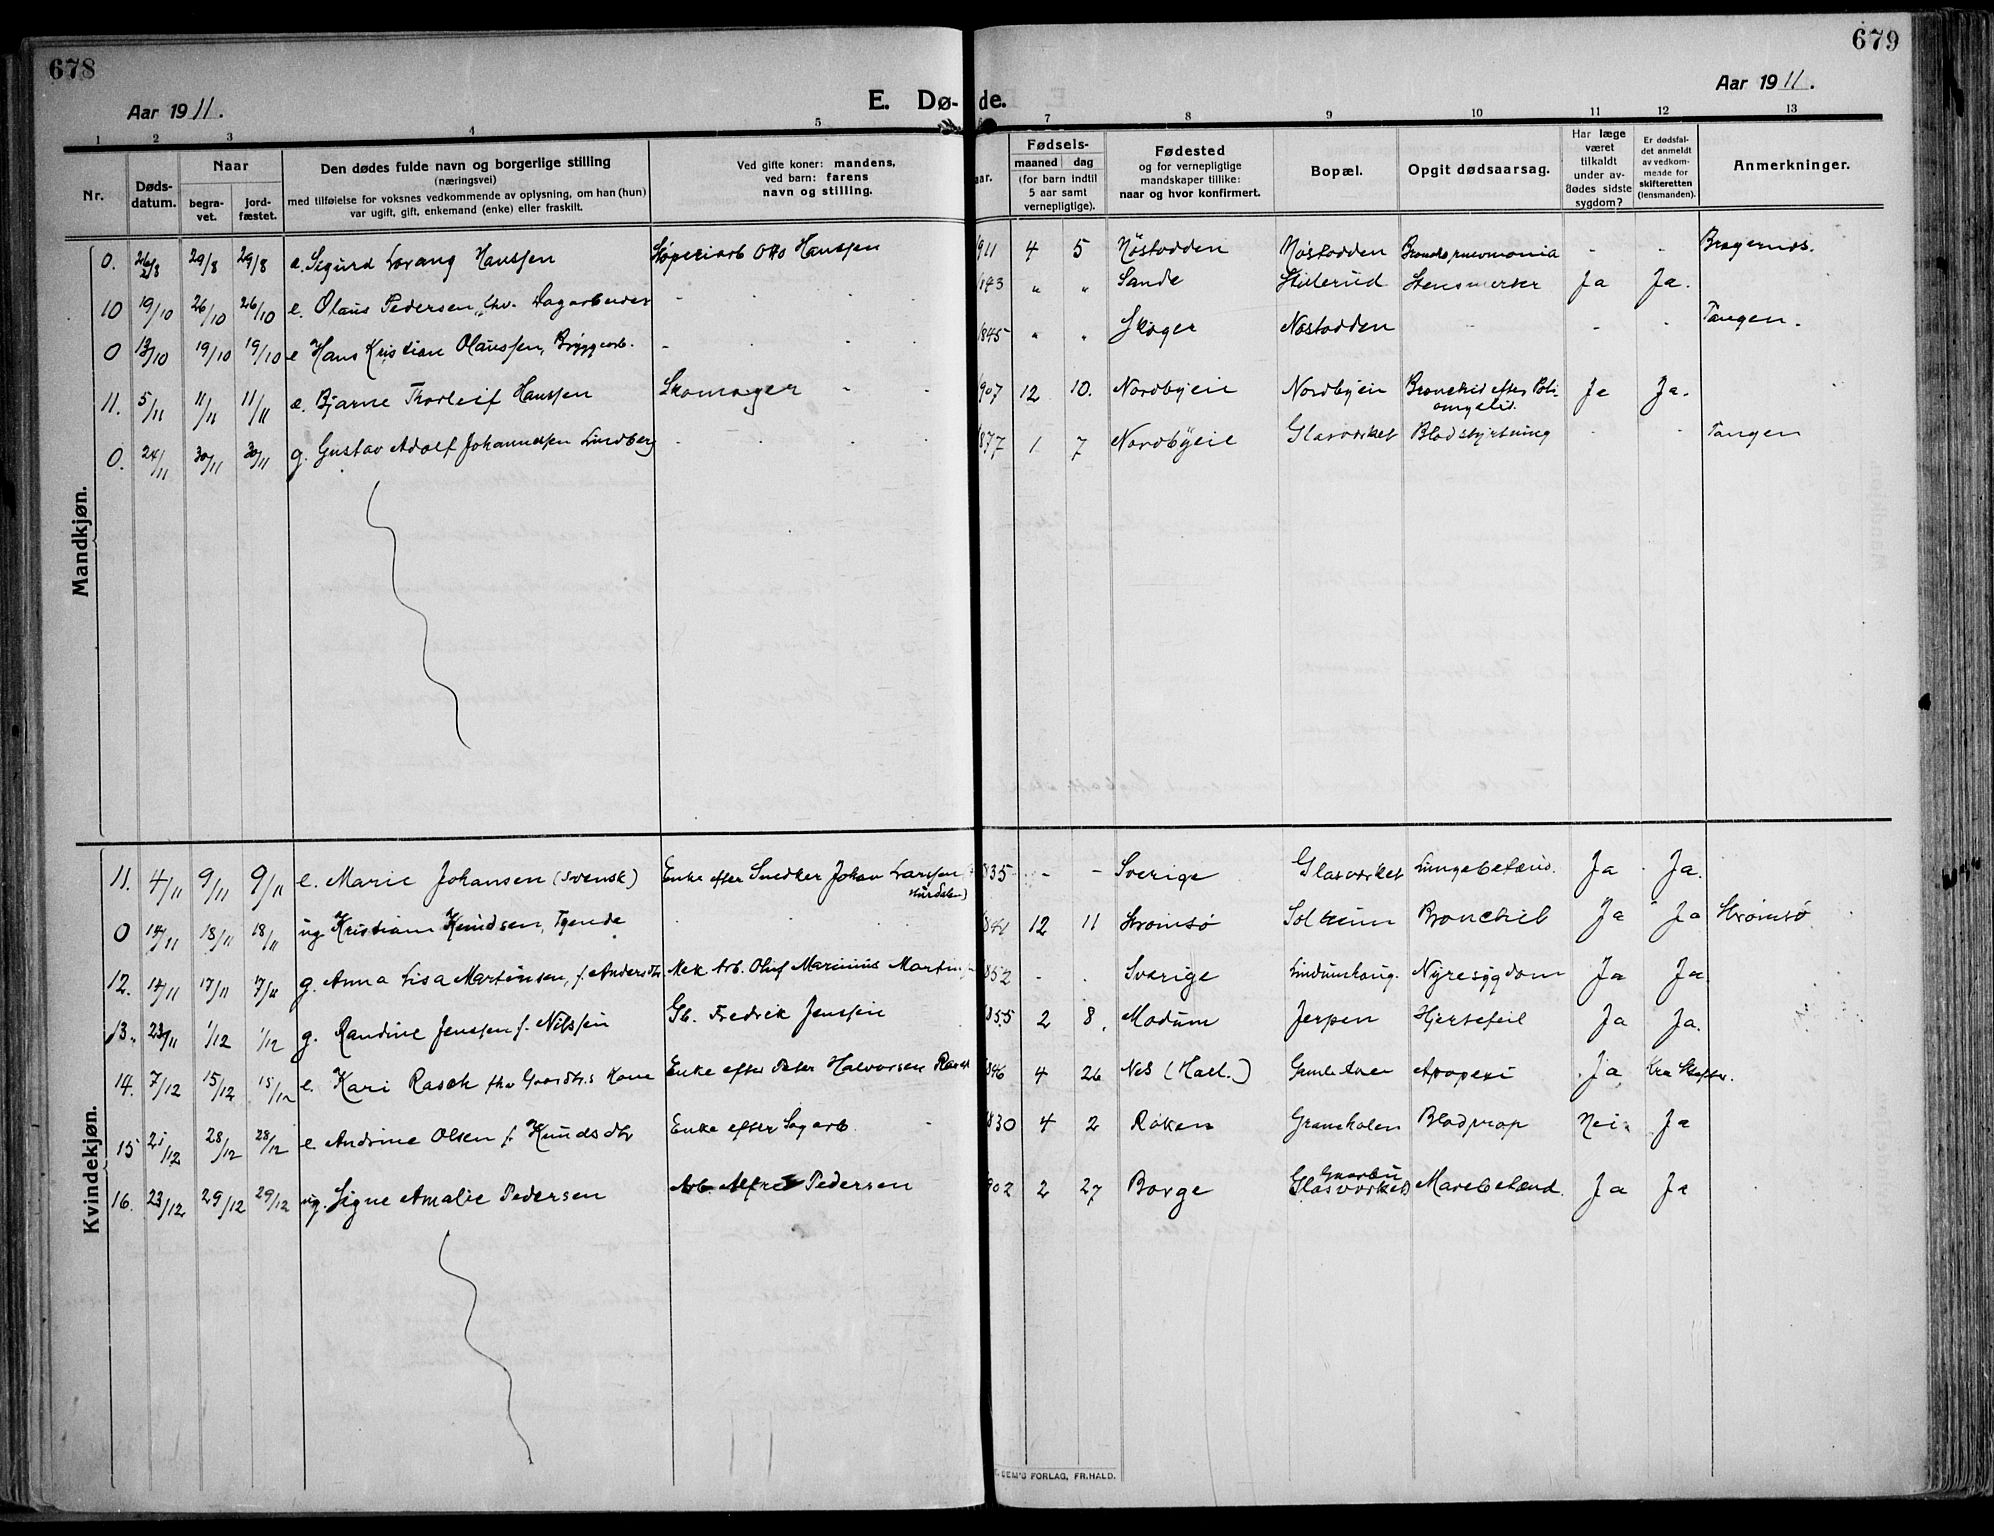 678
679
Aar 1911.
E. Dø-
de.
Aar 1911.
1 2 3 4 5 7 8 9 10 11 12 13
Nr.
Døds-
datum.
Naar
begra-
vet.
jord-
fæstet.
Den dødes fulde navn og borgerlige stilling
(næringsvei)
med tilføielse for voksnes vedkommende av oplysning, om han (hun)
var ugift, gift, enkemand (enke) eller fraskilt.
Ved gifte koner: mandens,
ved barn: farens
navn og stilling.
aar.
Fødsels-
maaned dag
(for barn indtil
5 aar samt
vernepligtige).
Fødested
og for vernepligtige
mandskaper tillike:
naar og hvor konfirmert.
Bopæl.
Opgit dødsaarsag.
Har læge
været
tilkaldt
under av-
dødes sidste
sygdom?
Er dødsfal-
det anmeldt
av vedkom-
mende for
skifteretten
(lensmanden).
Anmerkninger.
Mandkjøn.
0. 26/8 29/8 29/8 e. Sigurd Lorang Hanssen Støperiarb Otto Hanssen 911 4 5 Nøstodden Nøstodden Bronchopneumonia - - Bragernæs.
10 19/10 26/10 26/10 e. Olaus Pedersen, fhv. Dagarbeider - - - 143 " " Sande Stensmerter Ja Ja.
0 13/10 19/10 19/10 e Hans Kristian Olaussen, Bryggearb. - - - 845 " " Skoger Nøstodden - - - Tangen.
11. 5/11 11/11 11/11 æ. Bjarne Thorleif Hanssen Skomager - - 907 12 10. Nordbyeie Nordbyein Bronchid efter Poli-
omyelid. Ja Ja.
0. 24/11 30/11 30/11 g. Gustav Adolf Johannessen Lindberg - - - 877 1 7 Nordbyeie Glasværket Blodstyrtning - - Tangen
Kvindekjøn.
11. 4/11 9/11 9/11 e. Marie Johansen (svensk) Enke efter Snedker Johan Larssen 835 - - Sverige Glasværket Lungebetænd. Ja Ja.
0 14/11 18/11 18/11 ug Kristiane Knudsen, Tjende 12 11 Strømsø Solheim Bronchit Ja Ja Strømsø
12. 14/11 17/11 17/11 g. Anna Lisa Martinsen, f. Andersdtr Mek Arb. Oluf Marinius Martins 852 - - Sverige Lindumhaug. Nyresygdom Ja Ja.
13. 23/11 1/12 1/12 g. Randine Jenssen f. Nilssen Gb. Fredrik Jenssen 855 2 8. Modum Jerpen Hjertefeil Ja Ja.
14. 7/12 15/12 15/12 e. Kari Rasch fhv Gaardbrs Kone Enke efter Peter Halvorsen Rasch 846 4 26 Nes (Hall.) Gamle Aaer Apopexi Ja
15 21/12 28/12 28/12 e. Andrine Olsen f. Knudsdtr Enke efter Sagarb. - 830 4 2 Røken Graneholen Blodprop Nei. Ja
16. 23/12 29/12 29/12 ug. Signe Amalie Pedersen Arb. Alfred Pedersen 902 2 27 Borge Glasværket Mavebetænd. Ja Ja
SEM'S FORLAG, FR.HALD.